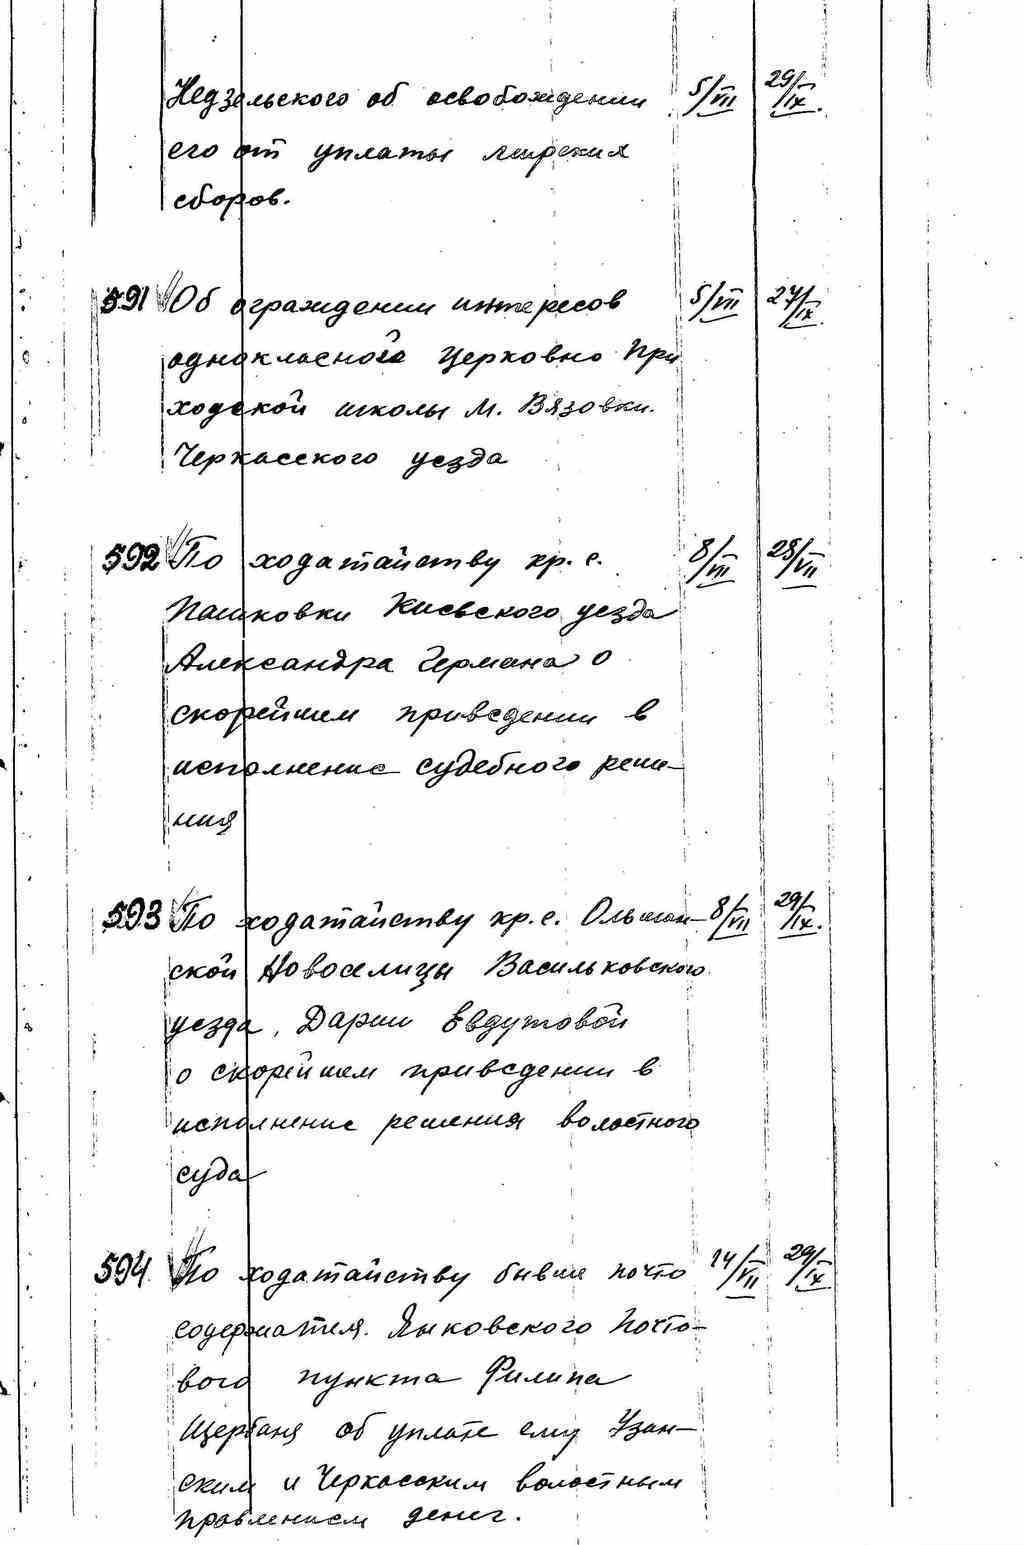 Недзельского об освобождении 5/VII 29/IX.
его от уплаты мирских
сборов.
591 Об ограждении интересов 5/VII 27/IX.
однокласной Церковно При
ходской школы м. Вязовки.
Черкасского уезда
592 По ходатайству кр. с. 8/VII 28/VII
Пашковки Киевского уезда
Александра Германа о
скорейшем приведении в
исполнение судебного реше-
ния
593 По ходатайству кр. с. Ольшан- 8/VII 29/IX.
ской Новоселицы Васильковского
уезда, Дарии Евдутовой
о скорейшем приведении в
исполнение решения волостного
суда
594. По ходатайству бывш почто 14/VII 29/IX
содержателя. Яыковского Почто-
вого пункта Филипа
Щербаня об уплате ему Узан-
ским и Черкасским волостным
правлением денег.